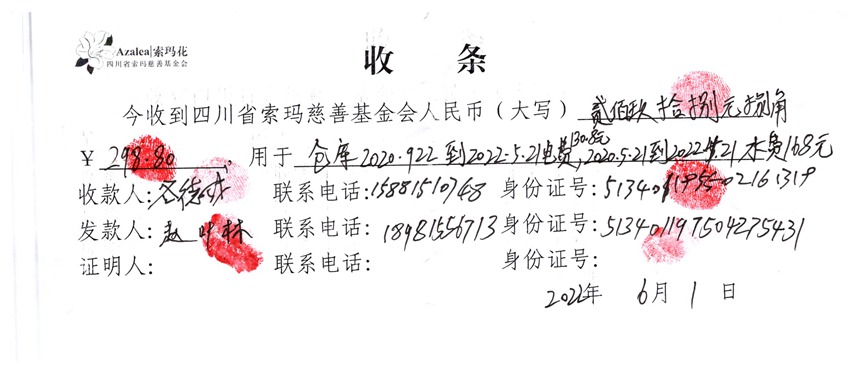 Azalea|索玛花
四川省索玛慈善基金会
收 条
今收到四川省索玛慈善基金会人民币（大写）贰佰玖拾捌元捌角
￥298.80。用于仓库2020.9.22到2022.5.21电费130.8元,2020.5.21到2022.5.21水费168元
收款人: 联系电话:15881510748 身份证号:
发款人:赵叶林 联系电话:18981556713 身份证号:513401197504275431
证明人: 联系电话: 身份证号:
2022年 6月 1 日